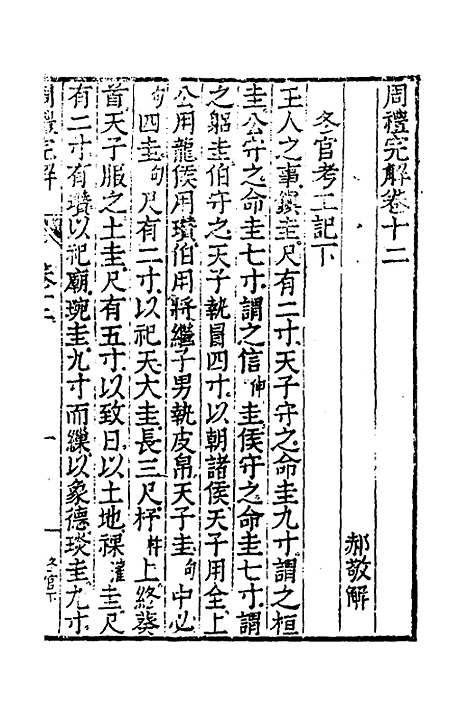 周禮完解卷十二
郝敬解
冬官考工記下
玉人之事鎮圭尺有二寸天子守之命圭九寸謂之桓
圭公守之命圭七寸謂之信伸圭侯守之命圭七寸謂
之躬圭伯守之天子執冒四寸以朝諸侯天子用全上
公用龍侯用瓚伯用將繼子男執皮帛天子圭句中必
句四圭句尺有二寸以祀天大圭長三尺杼杵上終葵
首天子服之土圭尺有五寸以致日以土地祼灌圭尺
有二寸有瓚以祀廟琬圭九寸而繅以象德琰圭九寸
周禮完解
卷十二
一
冬官下